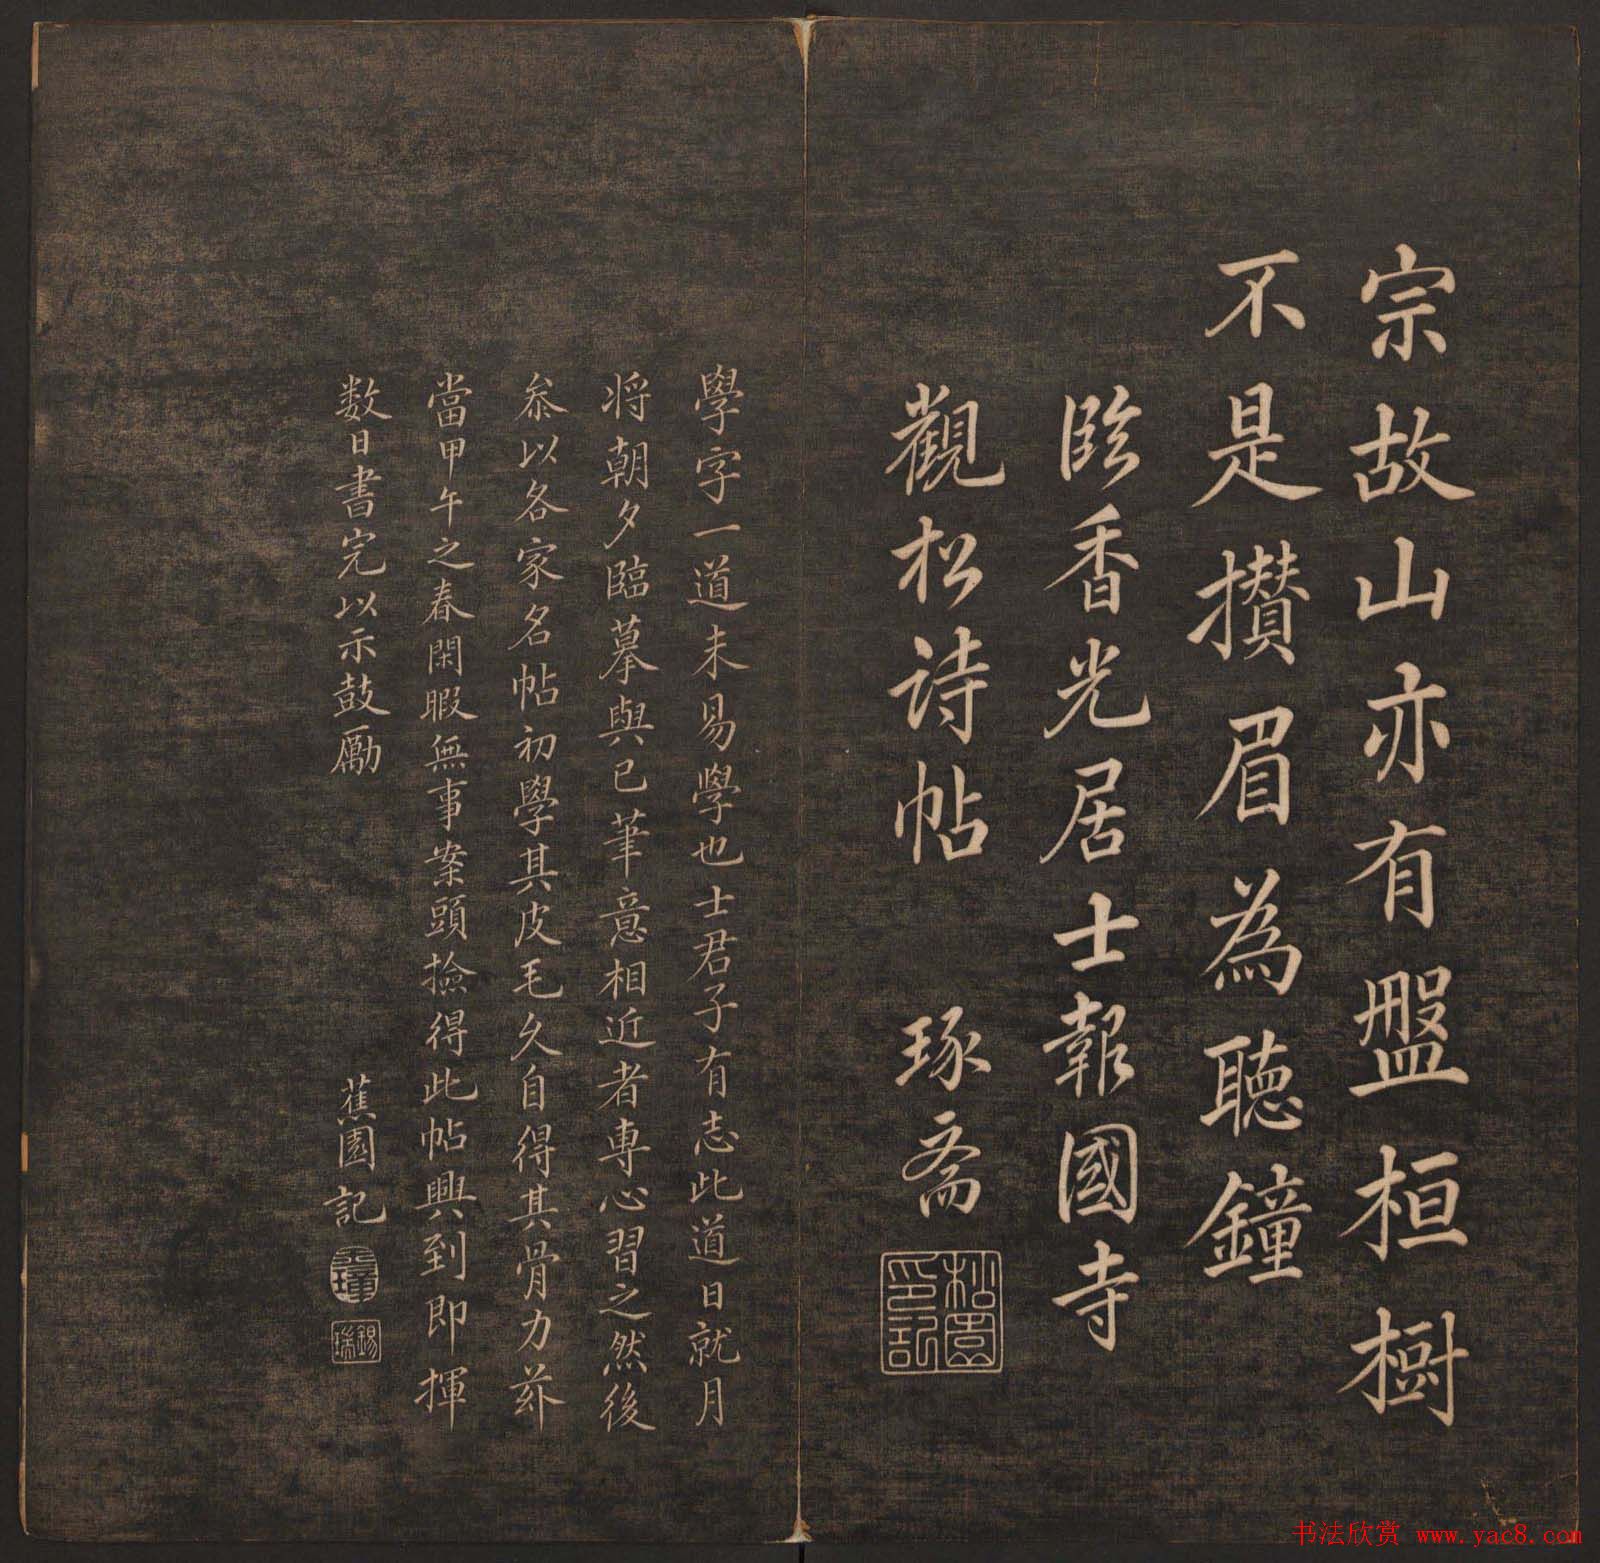 宗故山亦有盤桓樹
不是攢眉為聽鐘
臨香光居士報國寺
觀松诗帖　琢斋
松雪印記
學字一道未易學也士君子有志此道日就月
将朝夕臨摹與已筆意相近者專心習之然後
叅以各家名帖初學其皮毛久自得其骨力茲
當甲午之春閑暇無事案頭撿得此帖興到即揮
数日書完以示鼓勵　蕉園記
錫瑞
书法欣赏 www.yac8.com